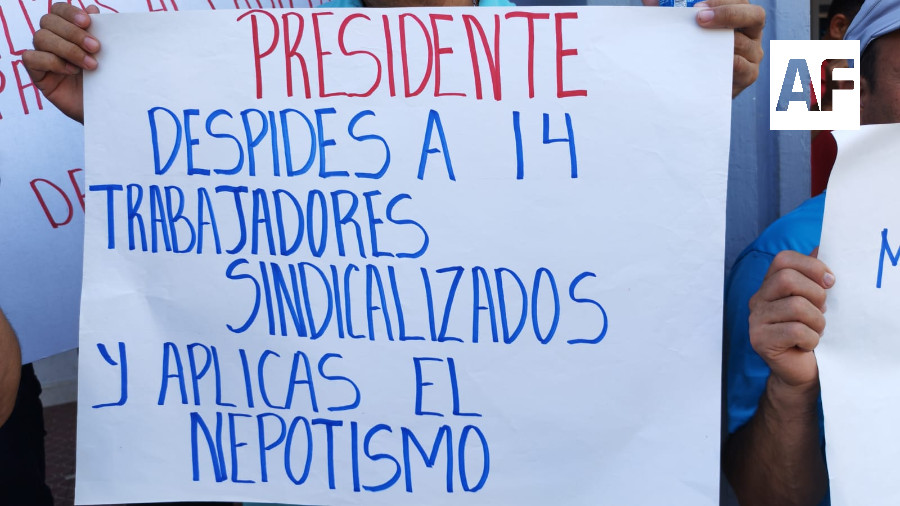 PRESIDENTE
DESPIDES A 14
TRABAJADORES
SINDICALIZADOS
Y APLICAS EL
NEPOTISMO
AF